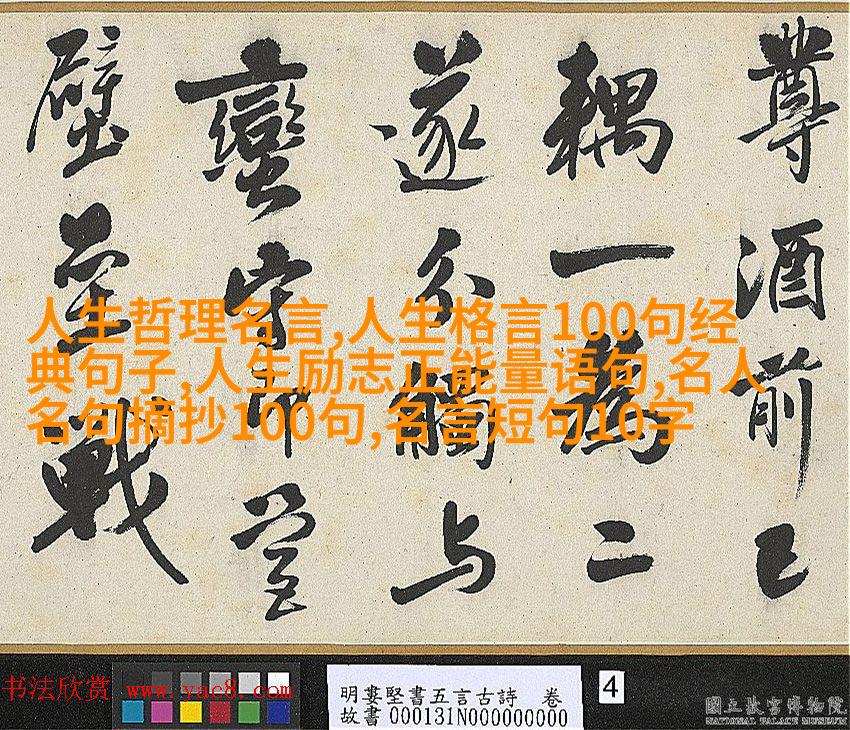 尊酒前已
耦一為二
遂分觸与
蠻守營
壁壘戰
人生哲理名言,人生格言100句经
典句子,人生励志正能量语句,名人
名句摘抄100句,名言短句10字
书法欣赏 www.yac8.com
明婁堅書五言古詩 卷
故書000131N000000000
4
國立故宮博物院
NATIONAL PALACE MUSEUM